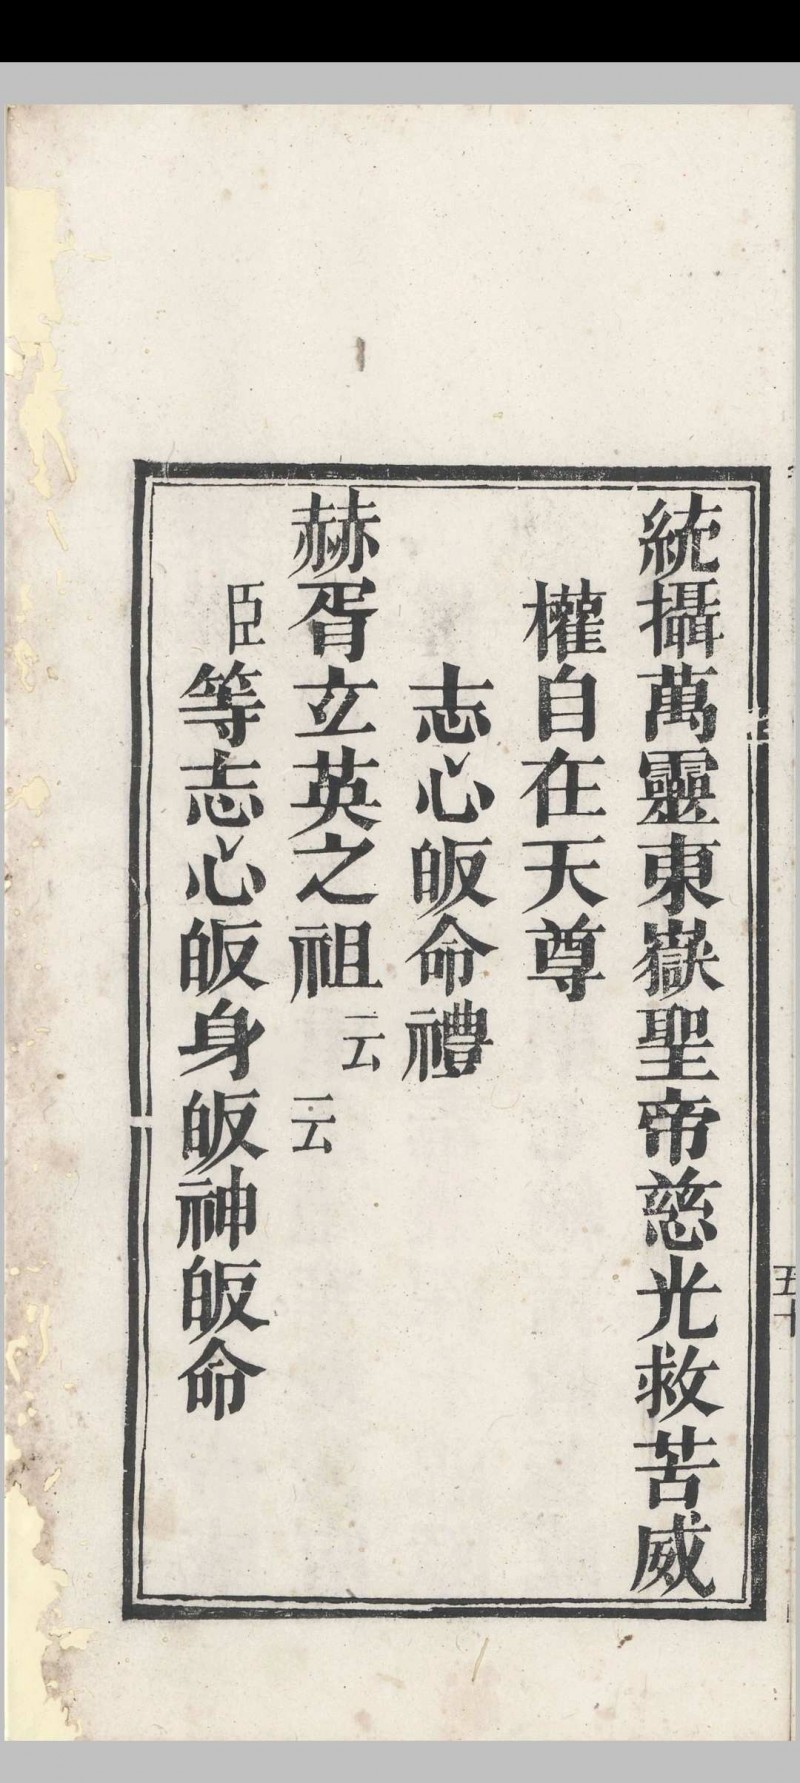 統攝萬靈東嶽聖帝慈光救苦威
權自在天尊
志心皈命禮
赫胥立英之祖云云
臣等志心皈身皈神皈命
五十